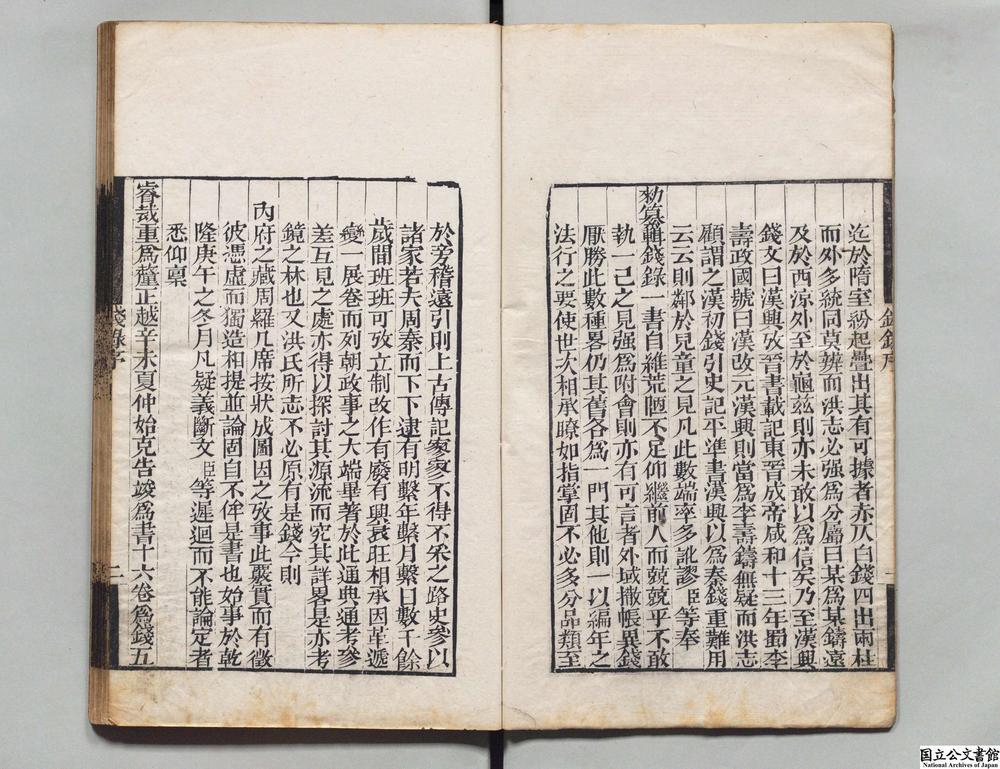 迄於隋室紛起疊出其有可據者赤仄白錢四出兩柱
而外多統同莫辨而洪志必强爲分屬曰某爲某鑄遠
及於西涼外至於龜兹則亦未敢以爲信矣乃至漢興
錢文曰漢興攷晉書載記東晉成帝咸和十三年蜀李
壽政國號曰漢改元漢興則當爲李壽鑄無疑而洪志
顧謂之漢初錢引史記平準書漢興以爲秦錢重難用
云云則鄰於兒童之見凡此數端率多訛謬臣等奉
勑纂輯錢錄一書自維荒陋不足仰繼前人而兢兢乎不敢
執一己之見强爲附會則亦有可言者外域撒帳異錢
厭勝此數種畧仍其舊各爲一門其他則一以編年之
法行之要使世次相承瞭如指掌固不必多分品類至
錢錄序
於旁稽遠引則上古傳記寥寥不得不采之路史參以
諸家若夫周秦而下下逮有明繫年繫月繫日數千餘
歲間班班可攷立制改作有廢有興衰旺相承因革遞
變一展卷而列朝政事之大端畢著於此通典通考參
差互見之處亦得以探討其源流而究其詳畧是亦考
鏡之林也又洪氏所志不必原有是錢今則
內府之藏周羅几席按狀成圖因之攷事此嚴貫而有徵
彼憑虛而獨造相提並論固自不侔是書也始事於乾
隆庚午之冬月凡疑義斷文臣等遲迴而不能論定者
悉仰稟
睿裁重爲釐正越辛未夏仲始克告竣爲書十六卷爲錢五
錢錄序
二
国立公文書館
National Archives of Japan